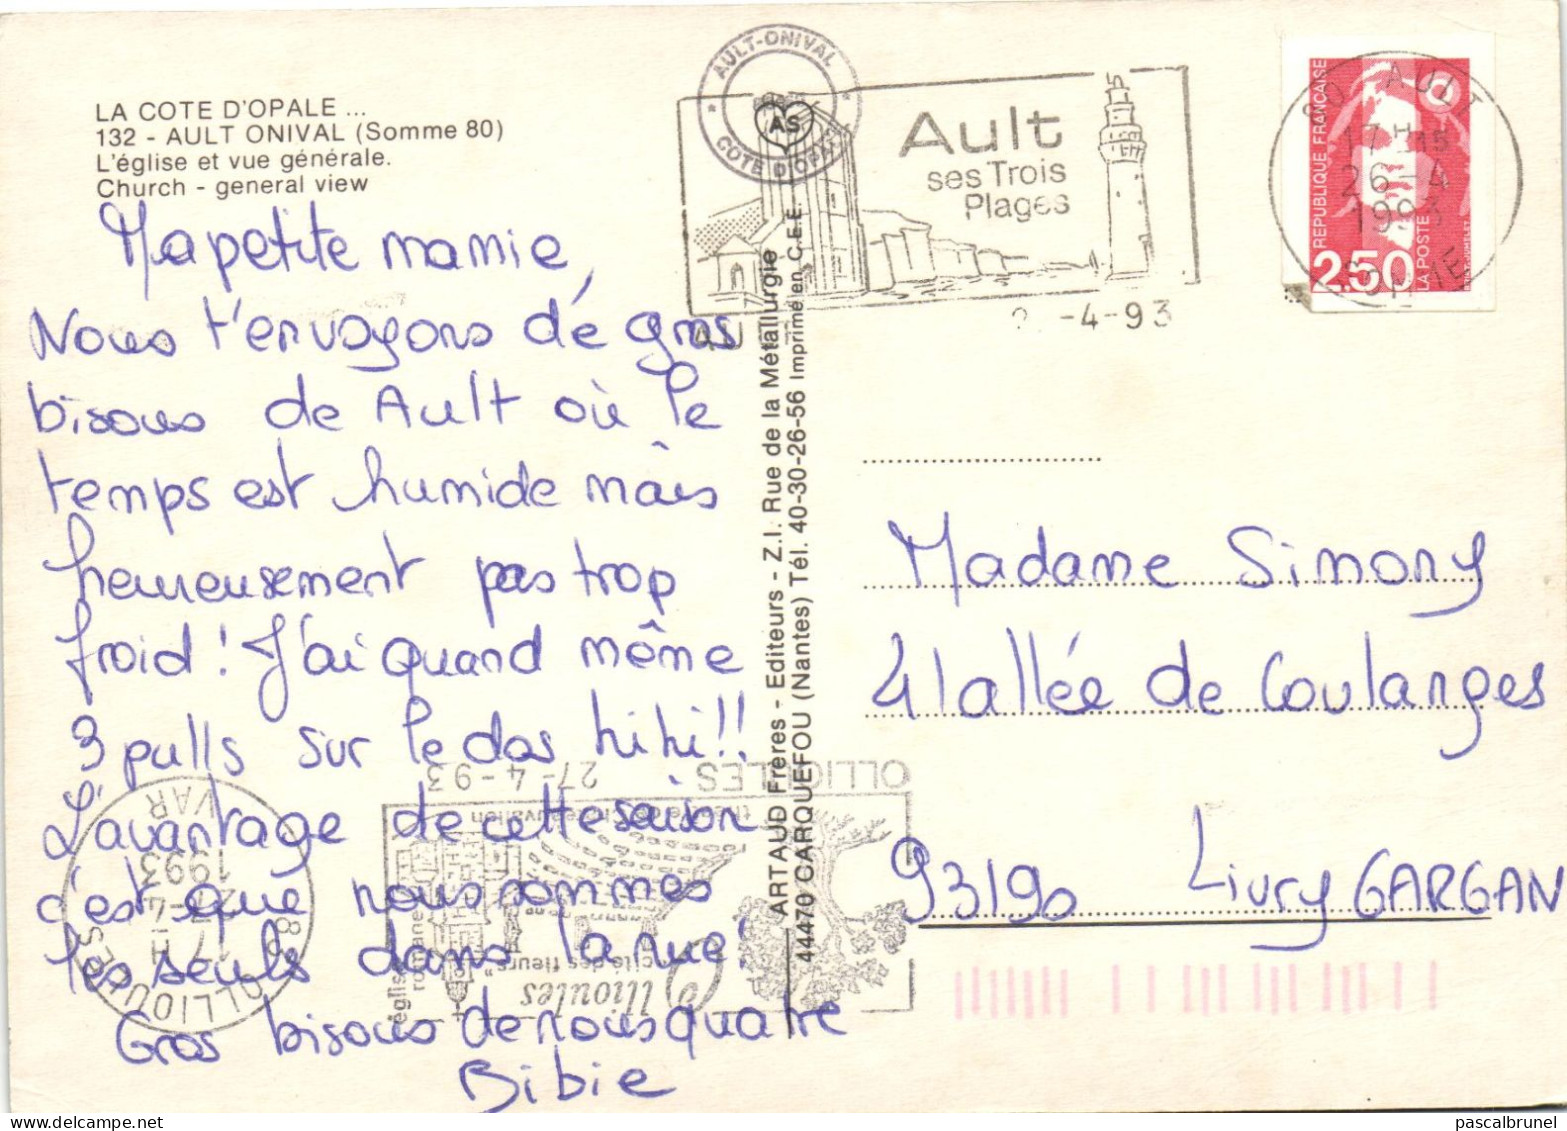 LA COTE D'OPALE ...
132 - AULT ONIVAL (Somme 80)
L'église et vue générale.
Church - general view
Ma petite mamie,
Nous t'envoyons de gros
bisous de Ault où le
temps est humide mais
heureusement pas trop
froid ! J'ai quand même
3 pulls sur le dos hihi!!
L'avantage de cette saison
c'est que nous sommes
les seuls dans la rue!
Gros bisous de nous quatre
Bibie
AULT-ONIVAL
AS
COTE D'OPALE
Ault
ses Trois
Plages
-4-93
AULT
17H15
26-4
1993
SOMME
REPUBLIQUE FRANÇAISE
2,50
LA POSTE
ARTAUD Frères - Editeurs - Z.I. Rue de la Métallurgie
44470 CARQUEFOU (Nantes) Tél. 40-30-26-56 Imprimé en C.E.E.
Madame Simony
41 allée de Coulanges
93190 Livry GARGAN
OLLIOULES
27-4-93
Ollioules
"cité des fleurs"
église
romane
83 OLLIOULES
17H
27-4
1993
VAR
pascalbrunel